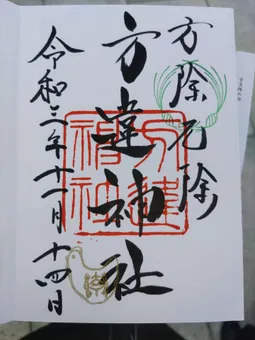 方除厄除
方違神社
令和三年十一月十四日
方違神社